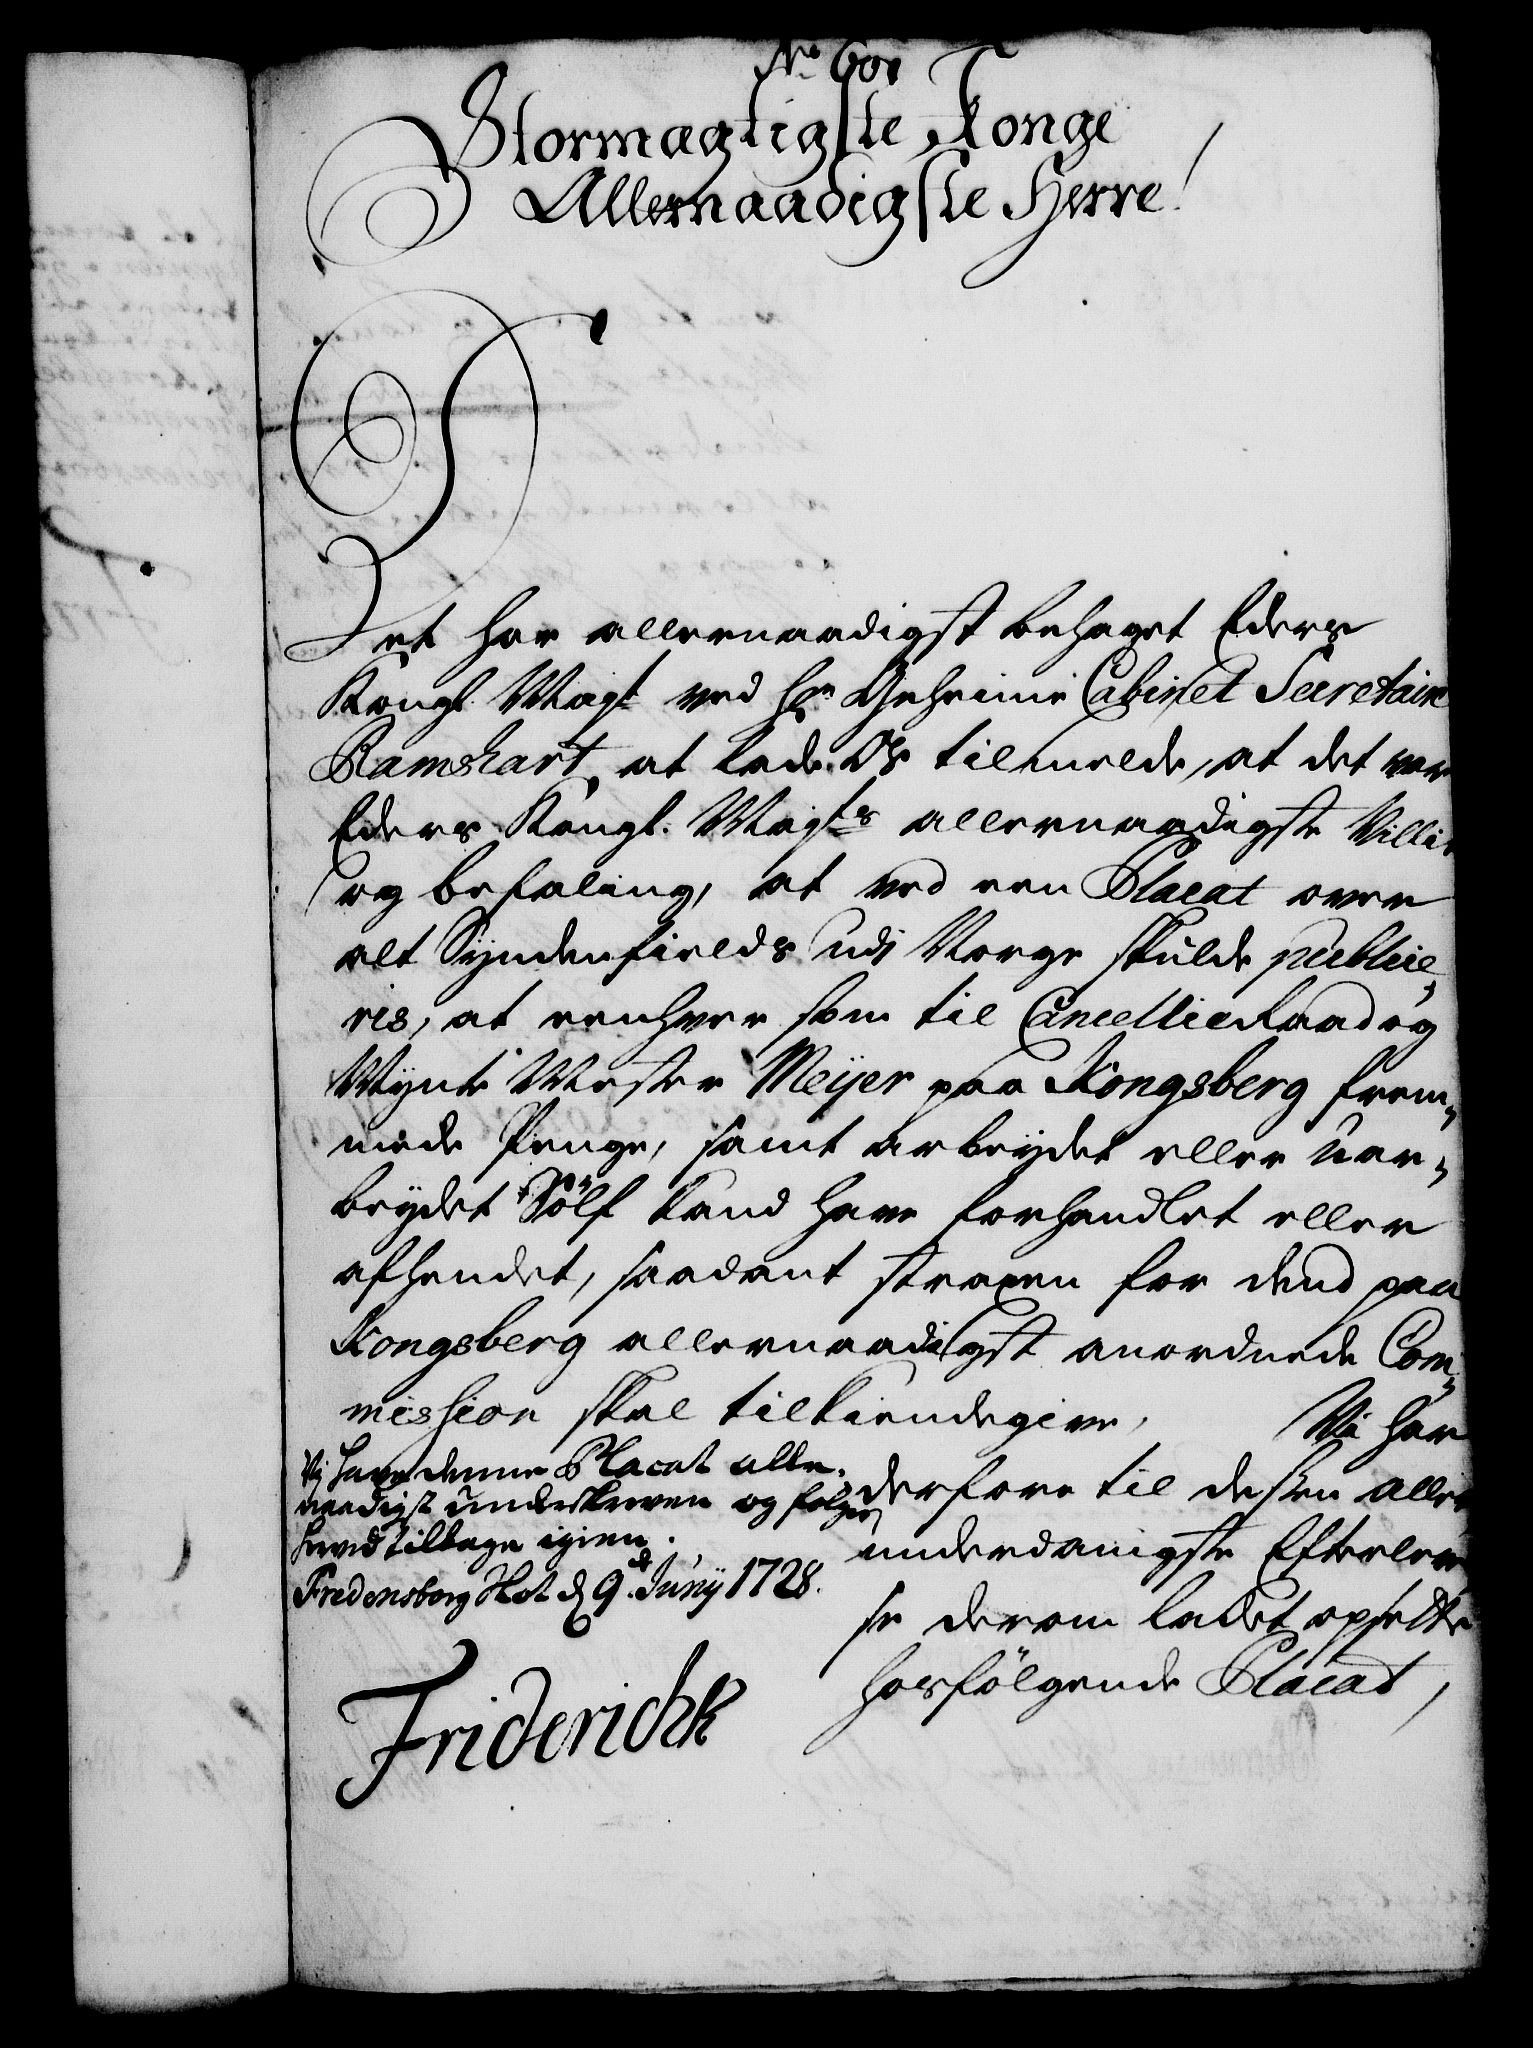 No 60.
Stormægtigste Konge
Allernaadigste Herre!
Det har allernaadigst behaget Eders
Kongl. Mayt. ved Hr. Geheime Cabinet Secretaire
Ramshart, at lade Os tilmelde, at det var
Eders Kongl. Mayts allernaadigste Villie
og befaling, at ved een Placat over
alt Syndenfields udi Norge skulde publice-
ris, at eenhver som til CancellieRaad og
Mynte Mester Meÿer paa Kongsberg frem-
mede Penge, samt arbeydet eller uar-
beydet Sölf kand have forhandlet eller
afhendet, saadant straxen for dend paa
Kongsberg allernaadigst anordnede Com-
mission skal tilkiendegive,
Vi har
derfore til deszen aller
underdanigste Efterleve
se derom ladet opsette
hosfölgende Placat,
Vj have denne Placat aller-
naadigst underskreven og fölger
hermed tilbage igien.
Fredensborg Slot d. 9d. Junij 1728.
Friderich R